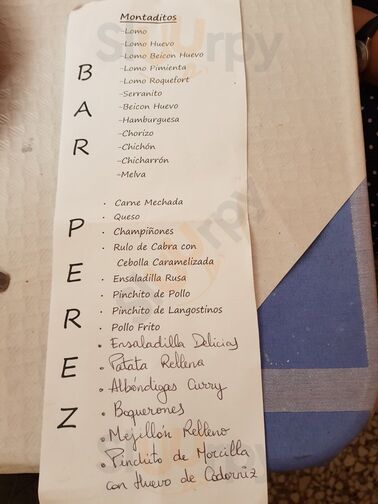 Montaditos
-Lomo
-Lomo Huevo
-Lomo Beicon Huevo
-Lomo Pimienta
-Lomo Roquefort
-Serranito
-Beicon Huevo
-Hamburguesa
-Chorizo
-Chichón
-Chicharrón
-Melva
BAR PEREZ
• Carne Mechada
• Queso
• Champiñones
• Rulo de Cabra con
Cebolla Caramelizada
• Ensaladilla Rusa
• Pinchito de Pollo
• Pinchito de Langostinos
• Pollo Frito
• Ensaladilla Delicias
• Patata Rellena
• Albóndigas Curry
• Boquerones
• Mejillón Relleno
• Pinchito de Morcilla
con Huevo de Codorniz
Sluurpy
Sluurpy
Sluurpy